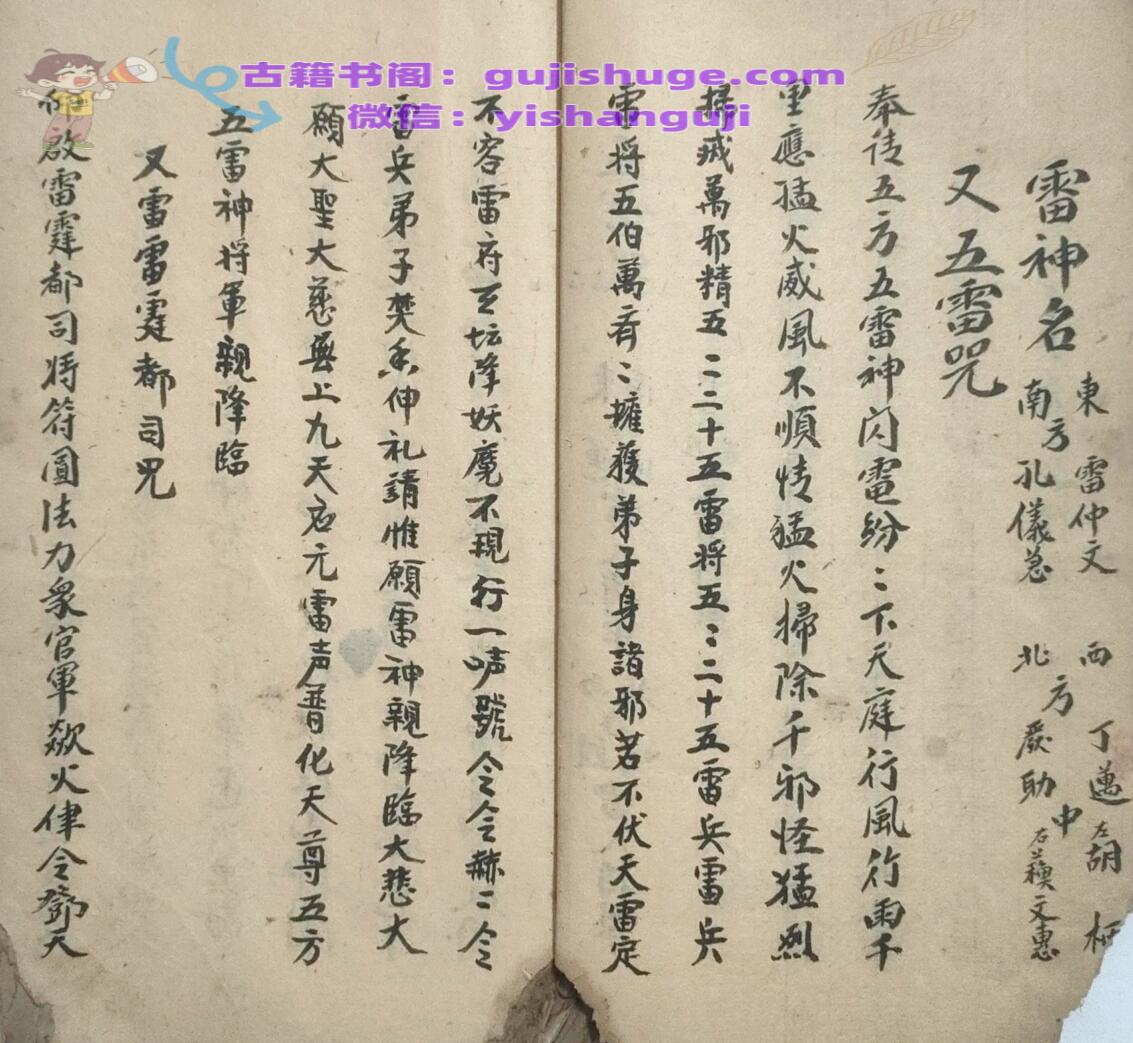 古籍书阁：gujishuge.com
微信：yishanguji
雷神名
東 雷仲文 西 丁邁 左胡 栢
南方孔儀 北方 助 中 右蘓文惠
又五雷咒
奉请五方五雷神闪電紛〻下天庭行風行雨千
里應猛火威風不順情猛火掃除千邪怪猛烈
掃滅萬邪精五〻二十五雷将五〻二十五雷兵雷兵
雷将五伯萬斉〻擁護弟子身諸邪若不伏天雷定
不容雷府立坛降妖魔不現行一声號令令赫〻令
雷兵弟子焚香伸礼請惟願雷神親降臨大悲大
願大聖大慈無上九天应元雷声普化天尊五方
五雷神将軍親降臨
又雷雷霆都司咒
啟雷霆都司将符圓法力衆官軍歘火律令鄧天